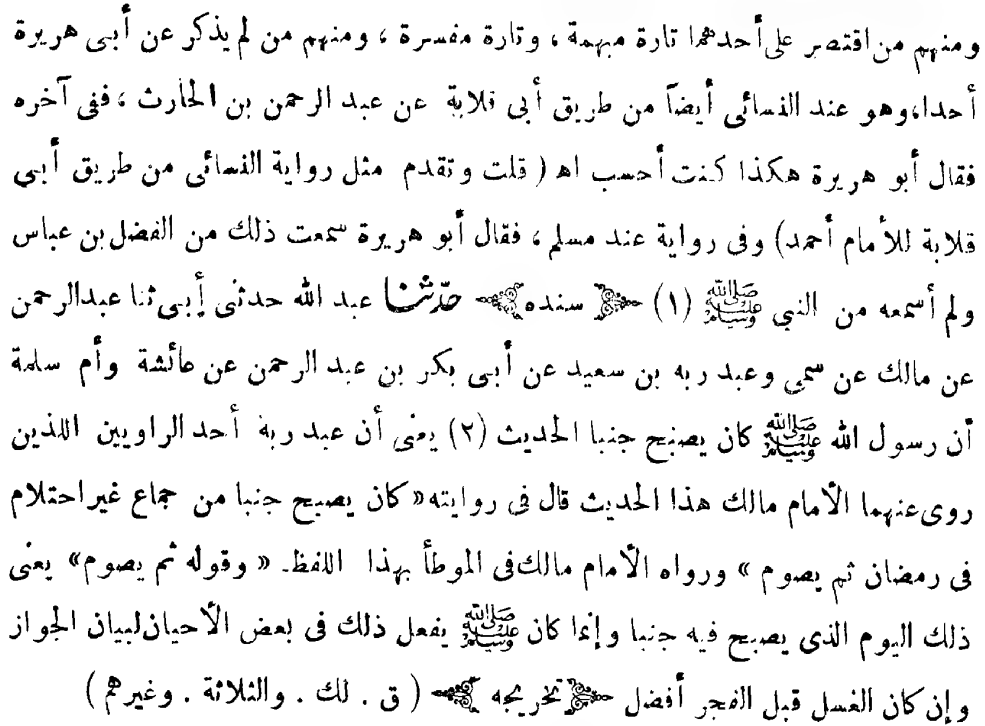 ومنهم من اقتصر على أحدهما تارة مبهمة ، وتارة مفسرة ، ومنهم من لم يذكر عن أبى هريرة
أحدا،وهو عند النسائى أيضاً من طريق أبى قلابة عن عبد الرحمن بن الحارث ،ففى آخره
فقال أبو هريرة هكذا كنت أحسب اه ( قلت وتقدم مثل رواية النسائى من طريق أبى
قلابة للأمام أحمد) وفى رواية عند مسلم ، فقال أبو هريرة سمعت ذلك من الفضل بن عباس
ولم أسمعه من النبي ﷺ (١) ﴿ سنده ﴾ حدّثنا عبد الله حدثنى أبى ثنا عبدالرحمن
عن مالك عن سمي وعبد ربه بن سعيد عن أبى بكر بن عبد الرحمن عن عائشة وأم سلمة
أن رسول الله ﷺ كان يصبح جنبا الحديث (٢) يعنى أن عبد ربه أحد الراويين اللذين
روى عنهما الأمام مالك هذا الحديث قال فى روايته« كان يصبح جنبا من جماع غير احتلام
فى رمضان ثم يصوم » ورواه الأمام مالك فى الموطأ بهذا اللفظ. « وقوله ثم يصوم» يعنى
ذلك اليوم الذى يصبح فيه جنبا وإنما كان ﷺ يفعل ذلك فى بعض الأحيان لبيان الجواز
وإن كان الغسل قبل الفجر أفضل ﴿ تخريجه ﴾ ( ق . لك . والثلاثة . وغيرهم )